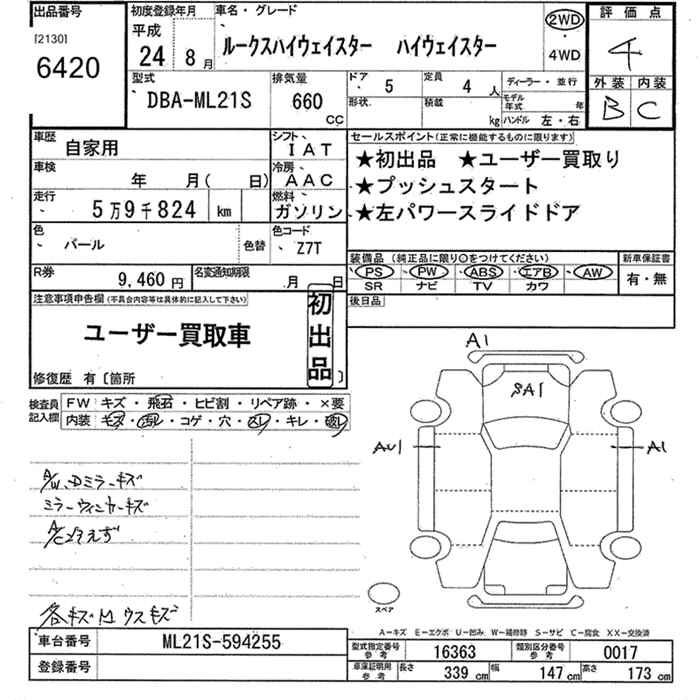 出品番号
[2130]
6420
初度登録年月
平成
24 8 月
車名・グレード
ルークスハイウェイスター ハイウェイスター
2WD
・
4WD
評価点
4
外装 内装
B C
型式
DBA-ML21S
排気量
660
CC
ドア
5
定員
4 人
形状
積載
kg
ディーラー・並行
モデル年式 年
ハンドル 左・右
車歴
自家用
シフト
IAT
車検
年 月( 日)
冷房
AAC
走行
5万9千824 km
燃料
ガソリン
色
パール
色替
色コード
Z7T
R券
9,460 円
名変通知期限
月 日
セールスポイント(正常に機能するものに限ります)
★初出品 ★ユーザー買取り
★プッシュスタート
★左パワースライドドア
装備品(純正品に限り○をつけてください)
PS PW ABS エアB AW
SR ナビ TV カワ
新車保証書
有・無
後日品
注意事項申告欄(不具合内容等は具体的に記入して下さい)
ユーザー買取車
初出品
修復歴 有〔箇所 〕
検査員記入欄
FW キズ・飛石・ヒビ割・リペア跡・×要
内装・キズ・汚レ・コゲ・穴・スレ・キレ・破レ
A1
SA1
AU1
A1
スペア
A/W、Dミラーキズ
ミラーウィンカーキズ
各キズ凹 ウスキズ
A-キズ E-エクボ U-凹み W-補修跡 S-サビ C-腐食 XX-交換済
車台番号
ML21S-594255
登録番号
型式指定番号 参考
16363
類別区分番号 参考
0017
車庫証明用 参考
長さ 339 cm
幅 147 cm
高さ 173 cm